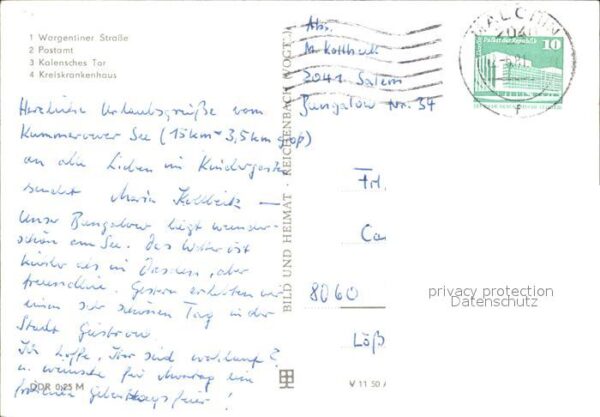 1 Wargentiner Straße
2 Postamt
3 Kalensches Tor
4 Kreiskrankenhaus
Abs.
M. Kollbeck
2041 Salem
Bungalow Nr. 34
MALCHIN
2040
PALAST DER REPUBLIK
10
Herzliche Urlaubsgrüße vom
Kummerower See (15km × 3,5km groß)
an alle Lieben im Kindergarten
sendet Maria —
Unser Bungalow liegt wunder-
schön am See. Das Wetter ist
kühler als in Dresden, aber
Gestern erlebten wir
einen sehr schönen Tag in der
Stadt Güstrow.
Ich hoffe, Ihr seid wohlauf?
u. wünsche für Montag ein
fröhliches Geburtstagsfeier!
BILD UND HEIMAT · REICHENBACH (VOGTL.)
Frl.
Ca
8060
Löß
privacy protection
Datenschutz
DDR 0,25 M
V 11 50